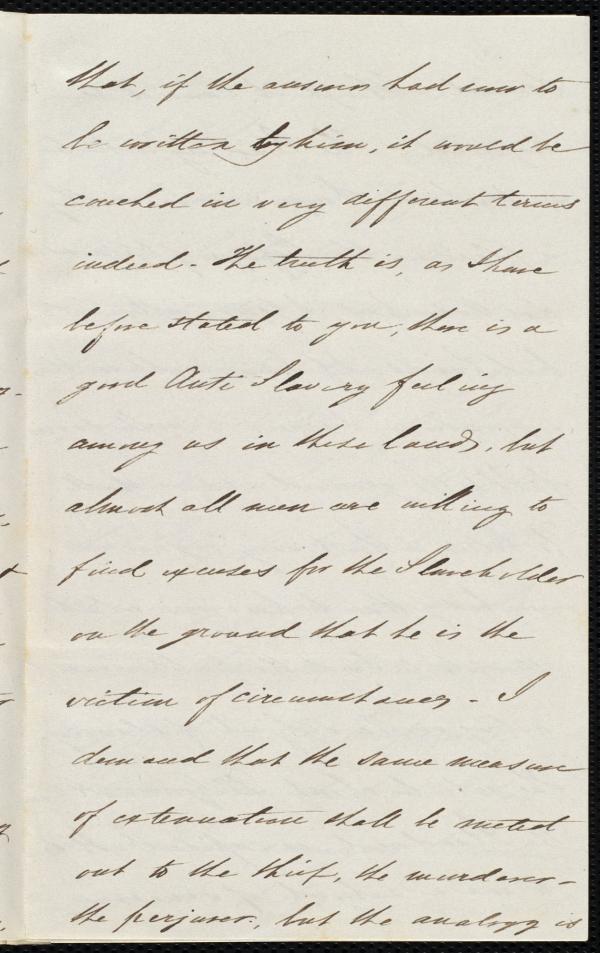 that, if the answer had now to
be written by him, it would be
couched in very different terms
indeed - The truth is, as I have
before stated to you, there is a
good Anti Slavery feeling
among us in these lands, but
almost all men are willing to
find excuses for the Slaveholder
on the ground that he is the
victim of circumstances - I
demand that the same measure
of extenuation shall be meted
out to the thief, the murderer -
the perjurer, but the analogy is